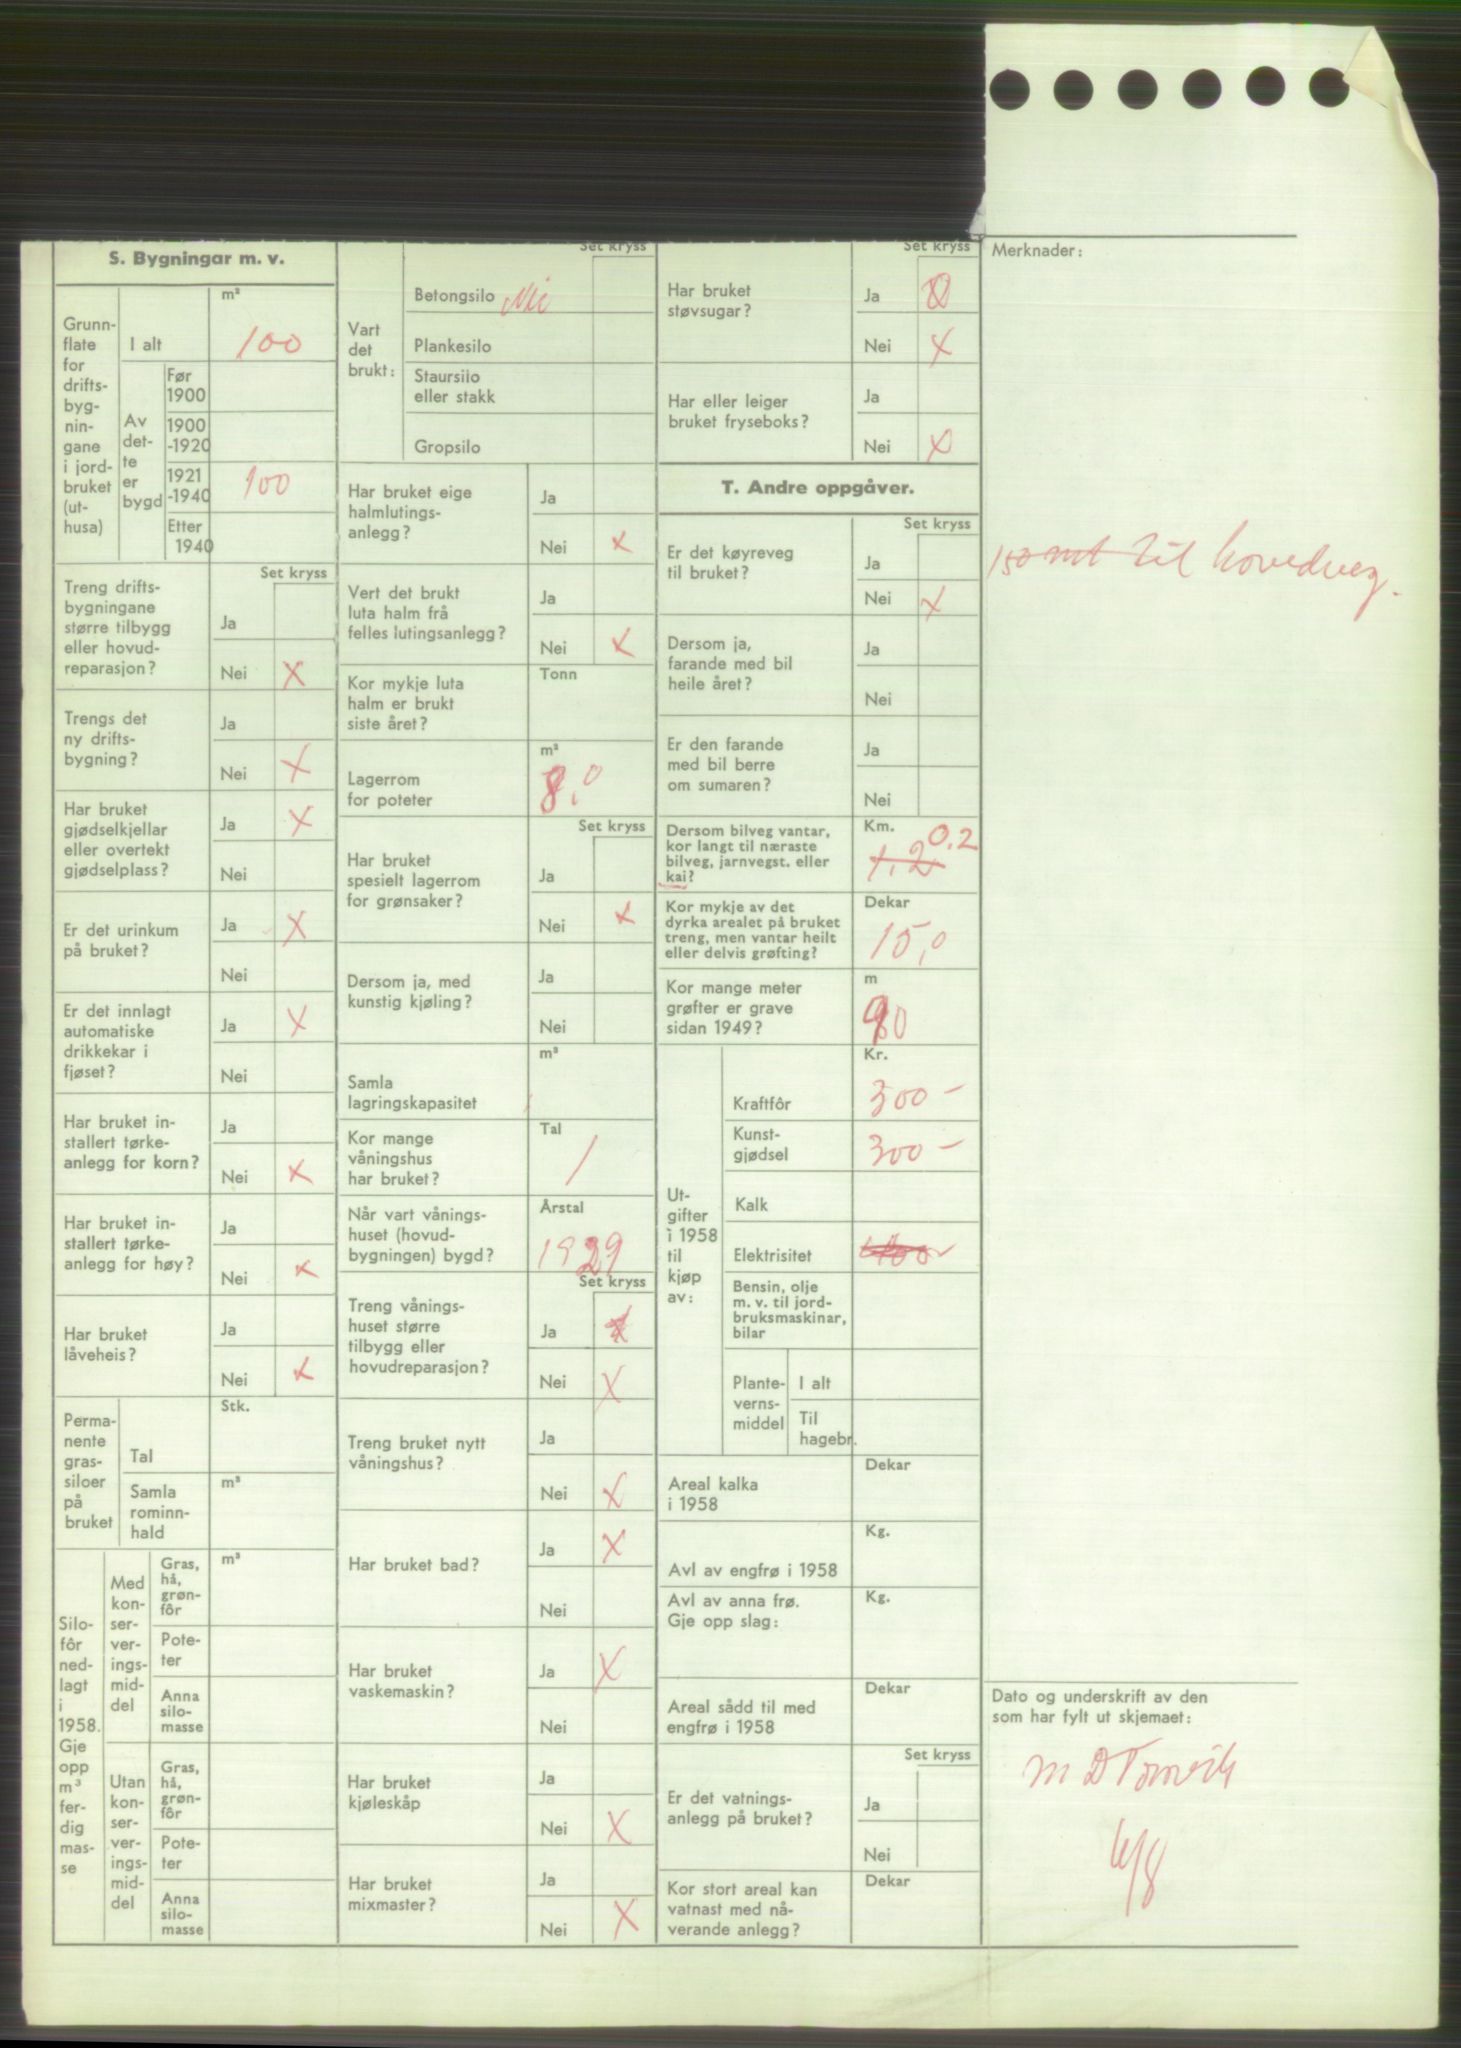 S. Bygningar m. v.
Grunn-
flate
for
drifts-
byg-
nin-
gane
i jord-
bruket
(ut-
husa)
m²
I alt
100
Av
det-
te
er
bygd
Før
1900
1900
-1920
1921
-1940
100
Etter
1940
Set kryss
Treng drifts-
bygningane
større tilbygg
eller hovud-
reparasjon?
Ja
Nei X
Trengs det
ny drifts-
bygning?
Ja
Nei X
Har bruket
gjødselkjellar
eller overtekt
gjødselplass?
Ja X
Nei
Er det urinkum
på bruket?
Ja X
Nei
Er det innlagt
automatiske
drikkekar i
fjøset?
Ja X
Nei
Har bruket in-
stallert tørke-
anlegg for korn?
Ja
Nei X
Har bruket in-
stallert tørke-
anlegg for høy?
Ja
Nei X
Har bruket
låveheis?
Ja
Nei X
Perma-
nente
gras-
siloer
på
bruket
Stk.
Tal
m³
Samla
rominn-
hald
Silo-
fôr
ned-
lagt
i
1958.
Gje
opp
m³
fer-
dig
mas-
se
Med
kon-
ser-
ver-
ings-
mid-
del
m³
Gras,
hå,
grøn-
fôr
Pote-
ter
Anna
silo-
masse
Utan
kon-
ser-
ver-
ings-
mid-
del
Gras,
hå,
grøn-
fôr
Pote-
ter
Anna
silo-
masse
Set kryss
Vart
det
brukt:
Betongsilo
Plankesilo
Staursilo
eller stakk
Gropsilo
Har bruket eige
halmlutings-
anlegg?
Ja
Nei X
Vert det brukt
luta halm frå
felles lutingsanlegg?
Ja
Nei X
Kor mykje luta
halm er brukt
siste året?
Tonn
Lagerrom
for poteter
m³
8,0
Set kryss
Har bruket
spesielt lagerrom
for grønsaker?
Ja
Nei X
Dersom ja, med
kunstig kjøling?
Ja
Nei
Samla
lagringskapasitet
m³
Kor mange
våningshus
har bruket?
Tal
1
Når vart vånings-
huset (hovud-
bygningen) bygd?
Årstal
1929
Set kryss
Treng vånings-
huset større
tilbygg eller
hovudreparasjon?
Ja X
Nei X
Treng bruket nytt
våningshus?
Ja
Nei X
Har bruket bad?
Ja X
Nei
Har bruket
vaskemaskin?
Ja X
Nei
Har bruket
kjøleskåp
Ja
Nei X
Har bruket
mixmaster?
Ja
Nei X
Set kryss
Har bruket
støvsugar?
Ja
Nei X
Har eller leiger
bruket fryseboks?
Ja
Nei X
T. Andre oppgåver.
Set kryss
Er det køyreveg
til bruket?
Ja
Nei X
Dersom ja,
farande med bil
heile året?
Ja
Nei
Er den farande
med bil berre
om sumaren?
Ja
Nei
Dersom bilveg vantar,
kor langt til næraste
bilveg, jarnvegst. eller
kai?
Km.
0.2
1,2
Kor mykje av det
dyrka arealet på bruket
treng, men vantar heilt
eller delvis grøfting?
Dekar
15,0
Kor mange meter
grøfter er grave
sidan 1949?
m
90
Ut-
gifter
i 1958
til
kjøp
av:
Kr.
Kraftfôr
300 –
Kunst-
gjødsel
300 –
Kalk
Elektrisitet
Bensin, olje
m. v. til jord-
bruksmaskinar,
bilar
Plante-
verns-
middel
I alt
Til
hagebr.
Areal kalka
i 1958
Dekar
Avl av engfrø i 1958
Kg.
Avl av anna frø.
Gje opp slag:
Kg.
Areal sådd til med
engfrø i 1958
Dekar
Set kryss
Er det vatnings-
anlegg på bruket?
Ja
Nei
Kor stort areal kan
vatnast med nå-
verande anlegg?
Dekar
Merknader:
150 mt til hovedveg.
Dato og underskrift av den
som har fylt ut skjemaet:
6/8